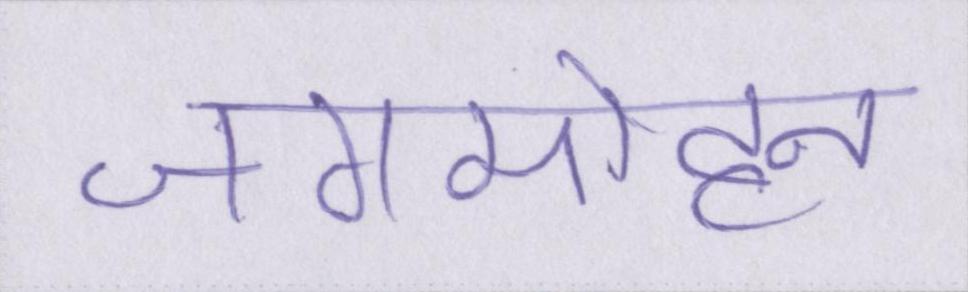 जगमोहन